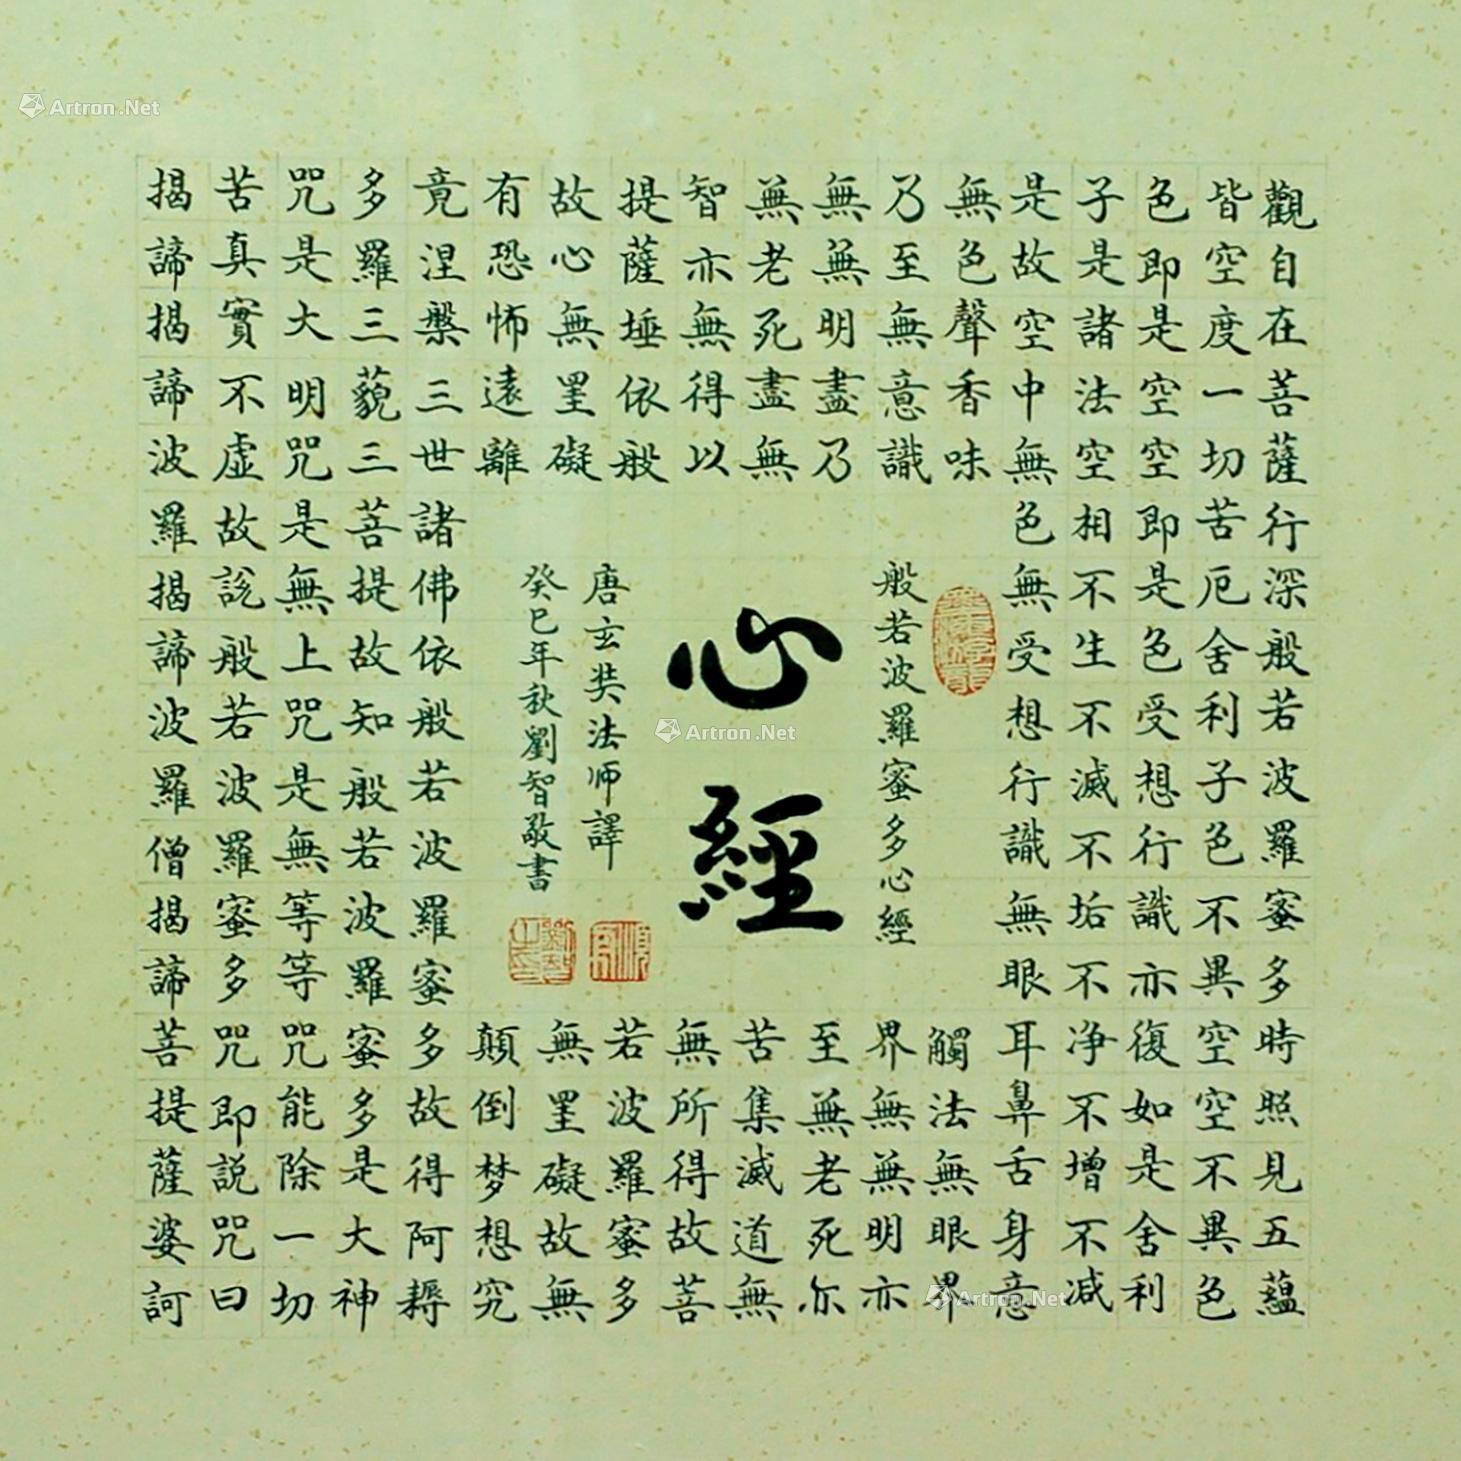 觀自在菩薩行深般若波羅蜜多時照見五蘊
皆空度一切苦厄舍利子色不異空空不異色
色即是空空即是色受想行識亦復如是舍利
子是諸法空相不生不滅不垢不净不增不减
是故空中無色無受想行識無眼耳鼻舌身意
無色聲香味觸法無眼界
乃至無意識界無無明亦
無無明盡乃至無老死亦
無老死盡無苦集滅道無
智亦無得以無所得故菩
提薩埵依般若波羅蜜多
故心無罣礙無罣礙故無
有恐怖遠離顛倒梦想究
竟涅槃三世諸佛依般若波羅蜜多故得阿耨
多羅三藐三菩提故知般若波羅蜜多是大神
咒是大明咒是無上咒是無等等咒能除一切
苦真實不虛故説般若波羅蜜多咒即説咒曰
揭諦揭諦波羅揭諦波羅僧揭諦菩提薩婆訶
般若波羅蜜多心經
心經
唐玄奘法师譯
癸巳年秋劉智敬書
Artron.Net
Artron.Net
Artron.Net